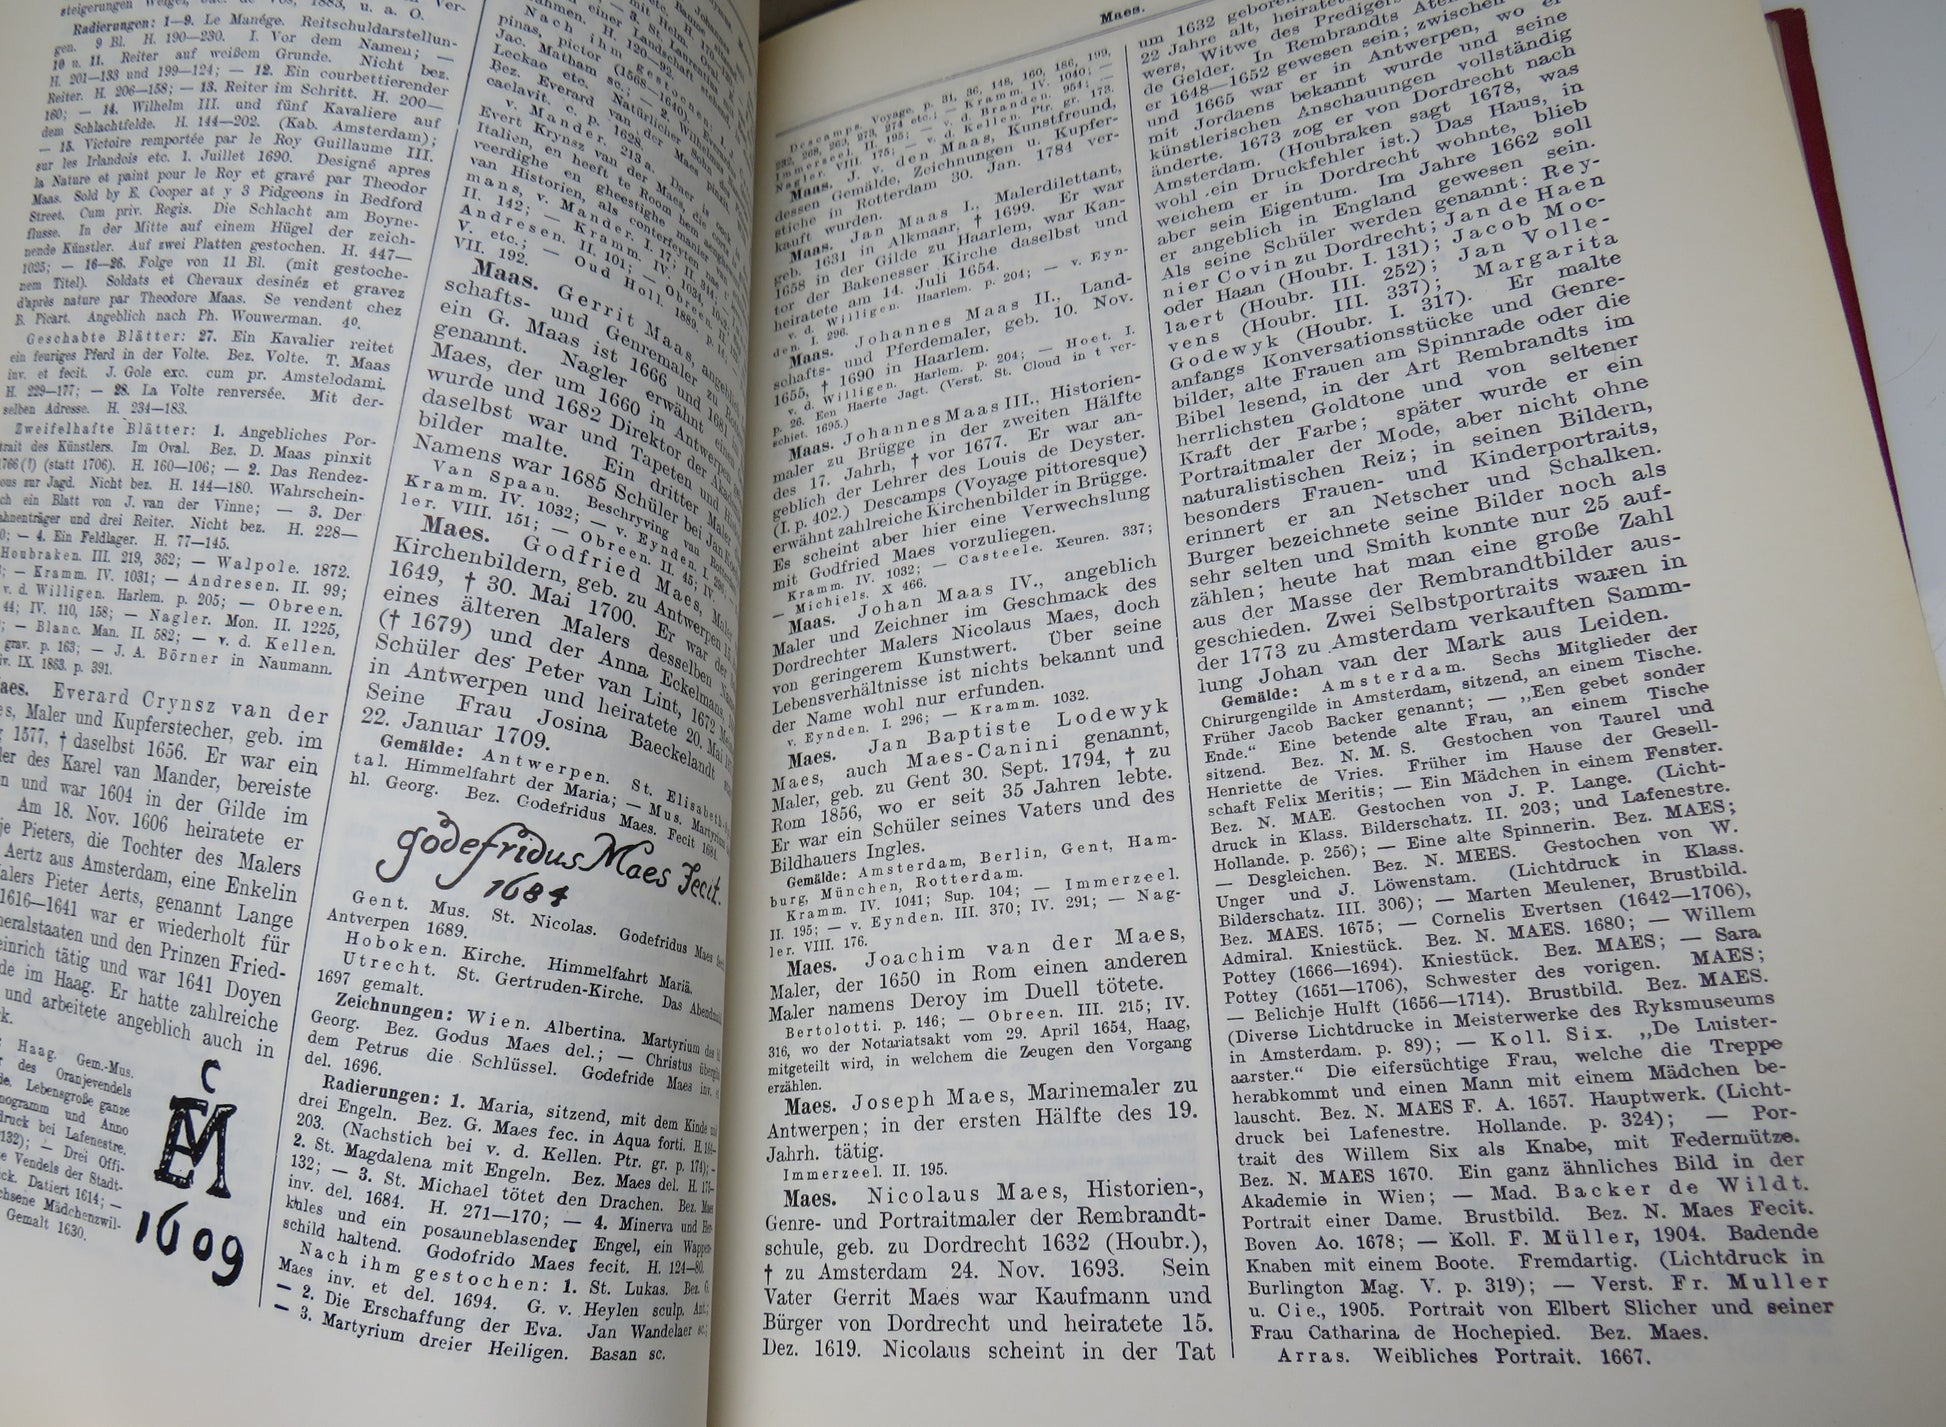 Radierungen: 1—9. Le Manége. Reitschuldarstellun-
gen. 9 Bl. H. 190—230. I. Vor dem Namen; —
10 u. 11. Reiter auf weißem Grunde. Nicht bez.
H. 201—133 und 199—124; — 12. Ein courbettierender
Reiter. H. 206—158; — 13. Reiter im Schritt. H. 200—
160; — 14. Wilhelm III. und fünf Kavaliere auf
dem Schlachtfelde. H. 144—202. (Kab. Amsterdam);
— 15. Victoire remportée par le Roy Guillaume III.
sur les Irlandois etc. 1. Juillet 1690. Designé apres
la Nature et paint pour le Roy et gravé par Theodor
Maas. Sold by E. Cooper at y 3 Pidgeons in Bedford
Street. Cum priv. Regis. Die Schlacht am Boyne-
flusse. In der Mitte auf einem Hügel der zeich-
nende Künstler. Auf zwei Platten gestochen. H. 447—
1025; — 16—26. Folge von 11 Bl. (mit gestoche-
nem Titel). Soldats et Chevaux desinéz et gravez
d'après nature par Theodore Maas. Se vendent chez
B. Picart. Angeblich nach Ph. Wouwerman. 40.
Geschabte Blätter: 27. Ein Kavalier reitet
ein feuriges Pferd in der Volte. Bez. Volte. T. Maas
inv. et fecit. J. Gole exc. cum pr. Amstelodami.
H. 229—177; — 28. La Volte renversée. Mit der-
selben Adresse. H. 234—183.
Zweifelhafte Blätter: 1. Angebliches Por-
trait des Künstlers. Im Oval. Bez. D. Maas pinxit
1766 (?) (statt 1706). H. 160—106; — 2. Das Rendez-
ous zur Jagd. Nicht bez. H. 144—180. Wahrschein-
ch ein Blatt von J. van der Vinne; — 3. Der
ahnenträger und drei Reiter. Nicht bez. H. 228—
0; — 4. Ein Feldlager. H. 77—145.
Houbraken. III. 219, 362; — Walpole. 1872.
; — Kramm. IV. 1031; — Andresen. II. 99;
v. d. Willigen. Harlem. p. 205; — Obreen.
44; IV. 110, 158; — Nagler. Mon. II. 1225,
; — Blanc. Man. II. 582; — v. d. Kellen.
grav. p. 163; — J. A. Börner in Naumann.
iv. IX. 1863. p. 391.
aes. Everard Crynsz van der
es, Maler und Kupferstecher, geb. im
g 1577, † daselbst 1656. Er war ein
ler des Karel van Mander, bereiste
n und war 1604 in der Gilde im
Am 18. Nov. 1606 heiratete er
je Pieters, die Tochter des Malers
Aertz aus Amsterdam, eine Enkelin
alers Pieter Aerts, genannt Lange
1616—1641 war er wiederholt für
neralstaaten und den Prinzen Fried-
einrich tätig und war 1641 Doyen
de im Haag. Er hatte zahlreiche
und arbeitete angeblich auch in
k.
Haag. Gem.-Mus.
des Oranjevendels
e. Lebensgroße ganze
nogramm und Anno
druck bei Lafenestre.
132); — Drei Offi-
e Vendels der Stadt-
ck. Datiert 1614; —
chsene Mädchenzwil-
Gemalt 1630.
1609
Maas. Gerrit Maas,
schafts- und Genremaler
ein G. Maas ist 1666 und 1681
genannt. Nagler erwähnt einen
Maes, der um 1660 in Antwerpen
wurde und 1682 Direktor der Akad
daselbst war und Tapeten und
bilder malte. Ein dritter Maler
Namens war 1685 Schüler bei Jan
Van Spaan. Beschryving van
Kramm. IV. 1032; — v. Eynden. I.
ler. VIII. 151; — Obreen. II. 45; IV.
Maes. Godfried Maes, Maler
Kirchenbildern, geb. zu Antwerpen 15.
1649, † 30. Mai 1700. Er war der
eines älteren Malers desselben
(† 1679) und der Anna Eckelmans,
Schüler des Peter van Lint, 1672
in Antwerpen und heiratete 20. Mai
Seine Frau Josina Baeckelandt
22. Januar 1709.
Gemälde: Antwerpen. St. Elisabeth-
tal. Himmelfahrt der Maria; — Mus. Martyrium
hl. Georg. Bez. Godefridus Maes. Fecit 1681.
godefridus Maes Fecit.
1684
Gent. Mus. St. Nicolas. Godefridus Maes
Antwerpen 1689.
Hoboken. Kirche. Himmelfahrt Mariä.
Utrecht. St. Gertruden-Kirche. Das Abendmahl
1697 gemalt.
Zeichnungen: Wien. Albertina. Martyrium des
Georg. Bez. Godus Maes del.; — Christus
dem Petrus die Schlüssel. Godefride Maes inv.
del. 1696.
Radierungen: 1. Maria, sitzend, mit dem Kinde
drei Engeln. Bez. G. Maes fec. in Aqua forti. H.
203. (Nachstich bei v. d. Kellen. Ptr. gr. p. 174); —
2. St. Magdalena mit Engeln. Bez. Maes del. H.
132; — 3. St. Michael tötet den Drachen. Bez. Maes
inv. del. 1684. H. 271—170; — 4. Minerva und Her-
kules und ein posauneblasender Engel, ein Wappen-
schild haltend. Godofrido Maes fecit. H. 124—80.
Nach ihm gestochen: 1. St. Lukas. Bez. G.
Maes inv. et del. 1694. G. v. Heylen sculp. Ant.;
— 2. Die Erschaffung der Eva. Jan Wandelaer sc.;
— 3. Martyrium dreier Heiligen. Basan sc.
Maes.
Descamps. Voyage. p. 31, 36, 148, 160, 186, 199,
232, 268, 269, 273, 274 etc.; — Kramm. IV. 1040; —
Immerzeel. II. 195; — v. d. Branden. 954; —
Nagler. VIII. 175; — v. d. Kellen. Ptr. gr. 173.
Maas. J. v. den Maas, Kunstfreund,
dessen Gemälde, Zeichnungen u. Kupfer-
stiche in Rotterdam 30. Jan. 1784 ver-
kauft wurden.
Maas. Jan Maas I., Malerdilettant,
geb. 1631 in Alkmaar, † 1699. Er war
1658 in der Gilde zu Haarlem, war Kan-
tor der Bakenesser Kirche daselbst und
heiratete am 14. Juli 1654.
v. d. Willigen. Haarlem. p. 204; — v. Eyn-
den. I. 296.
Maas. Johannes Maas II., Land-
schafts- und Pferdemaler, geb. 10. Nov.
1655, † 1690 in Haarlem.
v. d. Willigen. Harlem. p. 204; — Hoet. I.
p. 26. Een Haerte Jagt. (Verst. St. Cloud in t ver-
schiet. 1695.)
Maas. Johannes Maas III., Historien-
maler zu Brügge in der zweiten Hälfte
des 17. Jahrh, † vor 1677. Er war an-
geblich der Lehrer des Louis de Deyster.
(I. p. 402.) Descamps (Voyage pittoresque)
erwähnt zahlreiche Kirchenbilder in Brügge.
Es scheint aber hier eine Verwechslung
mit Godfried Maes vorzuliegen.
Kramm. IV. 1032; — Casteele. Keuren. 337;
— Michiels. X 466.
Maas. Johan Maas IV., angeblich
Maler und Zeichner im Geschmack des
Dordrechter Malers Nicolaus Maes, doch
von geringerem Kunstwert. Über seine
Lebensverhältnisse ist nichts bekannt und
der Name wohl nur erfunden.
v. Eynden. I. 296; — Kramm. 1032.
Maes. Jan Baptiste Lodewyk
Maes, auch Maes-Canini genannt,
Maler, geb. zu Gent 30. Sept. 1794, † zu
Rom 1856, wo er seit 35 Jahren lebte.
Er war ein Schüler seines Vaters und des
Bildhauers Ingles.
Gemälde: Amsterdam, Berlin, Gent, Ham-
burg, München, Rotterdam.
Kramm. IV. 1041; Sup. 104; — Immerzeel.
II. 195; — v. Eynden. III. 370; IV. 291; — Nag-
ler. VIII. 176.
Maes. Joachim van der Maes,
Maler, der 1650 in Rom einen anderen
Maler namens Deroy im Duell tötete.
Bertolotti. p. 146; — Obreen. III. 215; IV.
316, wo der Notariatsakt vom 29. April 1654, Haag,
mitgeteilt wird, in welchem die Zeugen den Vorgang
erzählen.
Maes. Joseph Maes, Marinemaler zu
Antwerpen; in der ersten Hälfte des 19.
Jahrh. tätig.
Immerzeel. II. 195.
Maes. Nicolaus Maes, Historien-,
Genre- und Portraitmaler der Rembrandt-
schule, geb. zu Dordrecht 1632 (Houbr.),
† zu Amsterdam 24. Nov. 1693. Sein
Vater Gerrit Maes war Kaufmann und
Bürger von Dordrecht und heiratete 15.
Dez. 1619. Nicolaus scheint in der Tat
um 1632 geboren
22 Jahre alt, heiratete
wers, Witwe des Predigers
de Gelder. In Rembrandts
er 1648—1652 gewesen sein; zwischen
und 1665 war er in Antwerpen, wo er
mit Jordaens bekannt wurde und seine
künstlerischen Anschauungen vollständig
änderte. 1673 zog er von Dordrecht nach
Amsterdam. (Houbraken sagt 1678, was
wohl ein Druckfehler ist.) Das Haus, in
weichem er in Dordrecht wohnte, blieb
aber sein Eigentum. Im Jahre 1662 soll
er angeblich in England gewesen sein.
Als seine Schüler werden genannt: Rey-
nier Covin zu Dordrecht; Jan de Haen
oder Haan (Houbr. I. 131); Jacob Moc-
laert (Houbr. III. 252); Jan Volle-
vens (Houbr. III. 337); Margarita
Godewyk (Houbr. I. 317). Er malte
anfangs Konversationsstücke und Genre-
bilder, alte Frauen am Spinnrade oder die
Bibel lesend, in der Art Rembrandts im
herrlichsten Goldtone und von seltener
Kraft der Farbe; später wurde er ein
Portraitmaler der Mode, aber nicht ohne
naturalistischen Reiz; in seinen Bildern,
besonders Frauen- und Kinderportraits,
erinnert er an Netscher und Schalken.
Burger bezeichnete seine Bilder noch als
sehr selten und Smith konnte nur 25 auf-
zählen; heute hat man eine große Zahl
aus der Masse der Rembrandtbilder aus-
geschieden. Zwei Selbstportraits waren in
der 1773 zu Amsterdam verkauften Samm-
lung Johan van der Mark aus Leiden.
Gemälde: Amsterdam. Sechs Mitglieder der
Chirurgengilde in Amsterdam, sitzend, an einem Tische.
Früher Jacob Backer genannt; — „Een gebet sonder
Ende.“ Eine betende alte Frau, an einem Tische
sitzend. Bez. N. M. S. Gestochen von Taurel und
Henriette de Vries. Früher im Hause der Gesell-
schaft Felix Meritis; — Ein Mädchen in einem Fenster.
Bez. N. MAE. Gestochen von J. P. Lange. (Licht-
druck in Klass. Bilderschatz. II. 203; und Lafenestre.
Hollande. p. 256); — Eine alte Spinnerin. Bez. MAES;
— Desgleichen. Bez. N. MEES. Gestochen von W.
Unger und J. Löwenstam. (Lichtdruck in Klass.
Bilderschatz. III. 306); — Marten Meulener, Brustbild.
Bez. MAES. 1675; — Cornelis Evertsen (1642—1706),
Admiral. Kniestück. Bez. N. MAES. 1680; — Willem
Pottey (1666—1694). Kniestück. Bez. MAES; — Sara
Pottey (1651—1706), Schwester des vorigen. MAES;
— Belichje Hulft (1656—1714). Brustbild. Bez. MAES.
(Diverse Lichtdrucke in Meisterwerke des Ryksmuseums
in Amsterdam. p. 89); — Koll. Six. „De Luister-
aarster.“ Die eifersüchtige Frau, welche die Treppe
herabkommt und einen Mann mit einem Mädchen be-
lauscht. Bez. N. MAES F. A. 1657. Hauptwerk. (Licht-
druck bei Lafenestre. Hollande. p. 324); — Por-
trait des Willem Six als Knabe, mit Federmütze.
Bez. N. MAES 1670. Ein ganz ähnliches Bild in der
Akademie in Wien; — Mad. Backer de Wildt.
Portrait einer Dame. Brustbild. Bez. N. Maes Fecit.
Boven Ao. 1678; — Koll. F. Müller, 1904. Badende
Knaben mit einem Boote. Fremdartig. (Lichtdruck in
Burlington Mag. V. p. 319); — Verst. Fr. Muller
u. Cie., 1905. Portrait von Elbert Slicher und seiner
Frau Catharina de Hochepied. Bez. Maes.
Arras. Weibliches Portrait. 1667.